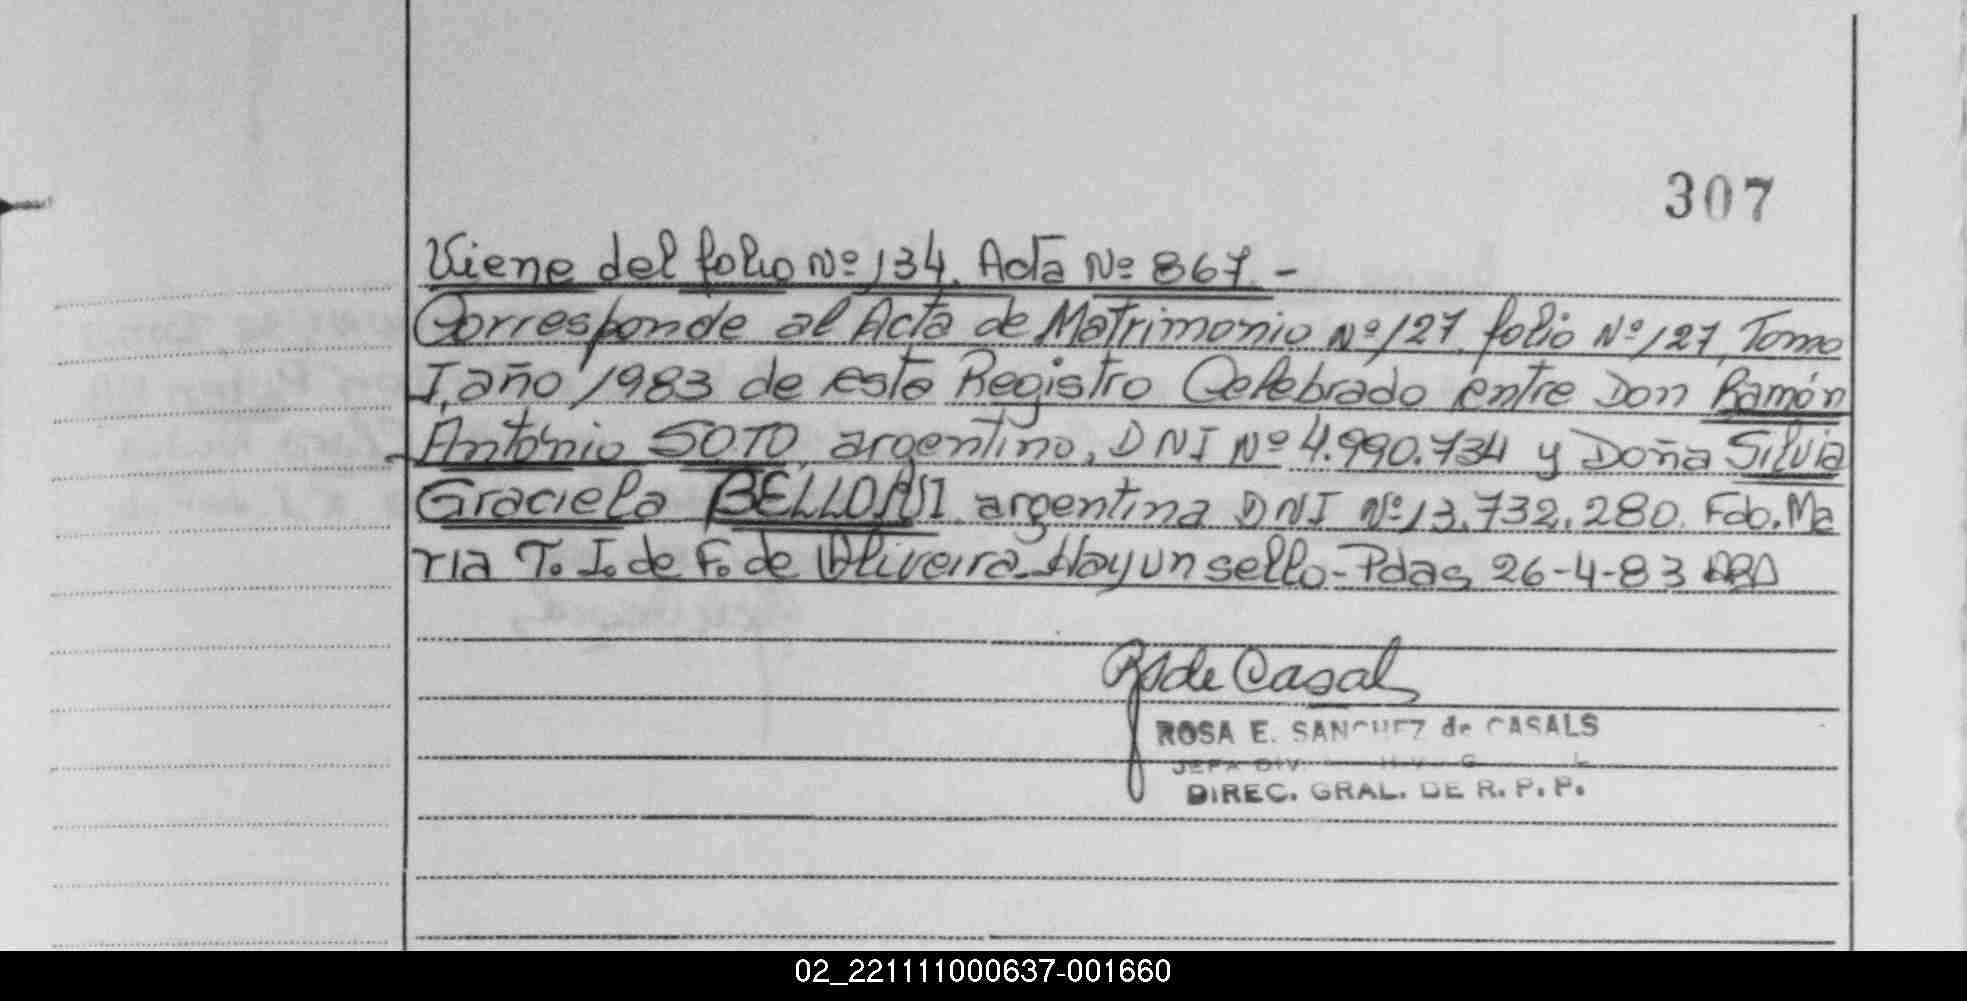 307
Viene del folio Nº 134. Acta Nº 867. -
Corresponde al Acta de Matrimonio Nº 127, folio Nº 127, Tomo
I, año 1983 de este Registro Celebrado entre Don Ramón
Antonio SOTO, argentino, DNI Nº 4.990.734 y Doña Silvia
Graciela argentina DNI Nº 13.732.280. Fdo. Ma
ria T. I. de F. de Oliveira. Hay un sello - Pdas, 26-4-83
Rs de Casals
ROSA E. SANCHEZ de CASALS
JEFA DIV.
DIREC. GRAL. DE R. P. P.
02_221111000637-001660